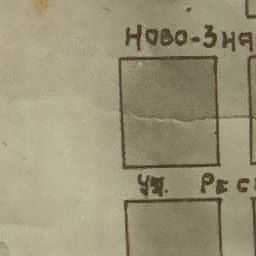 НОВО-ЗНА
УЛ. РЕС